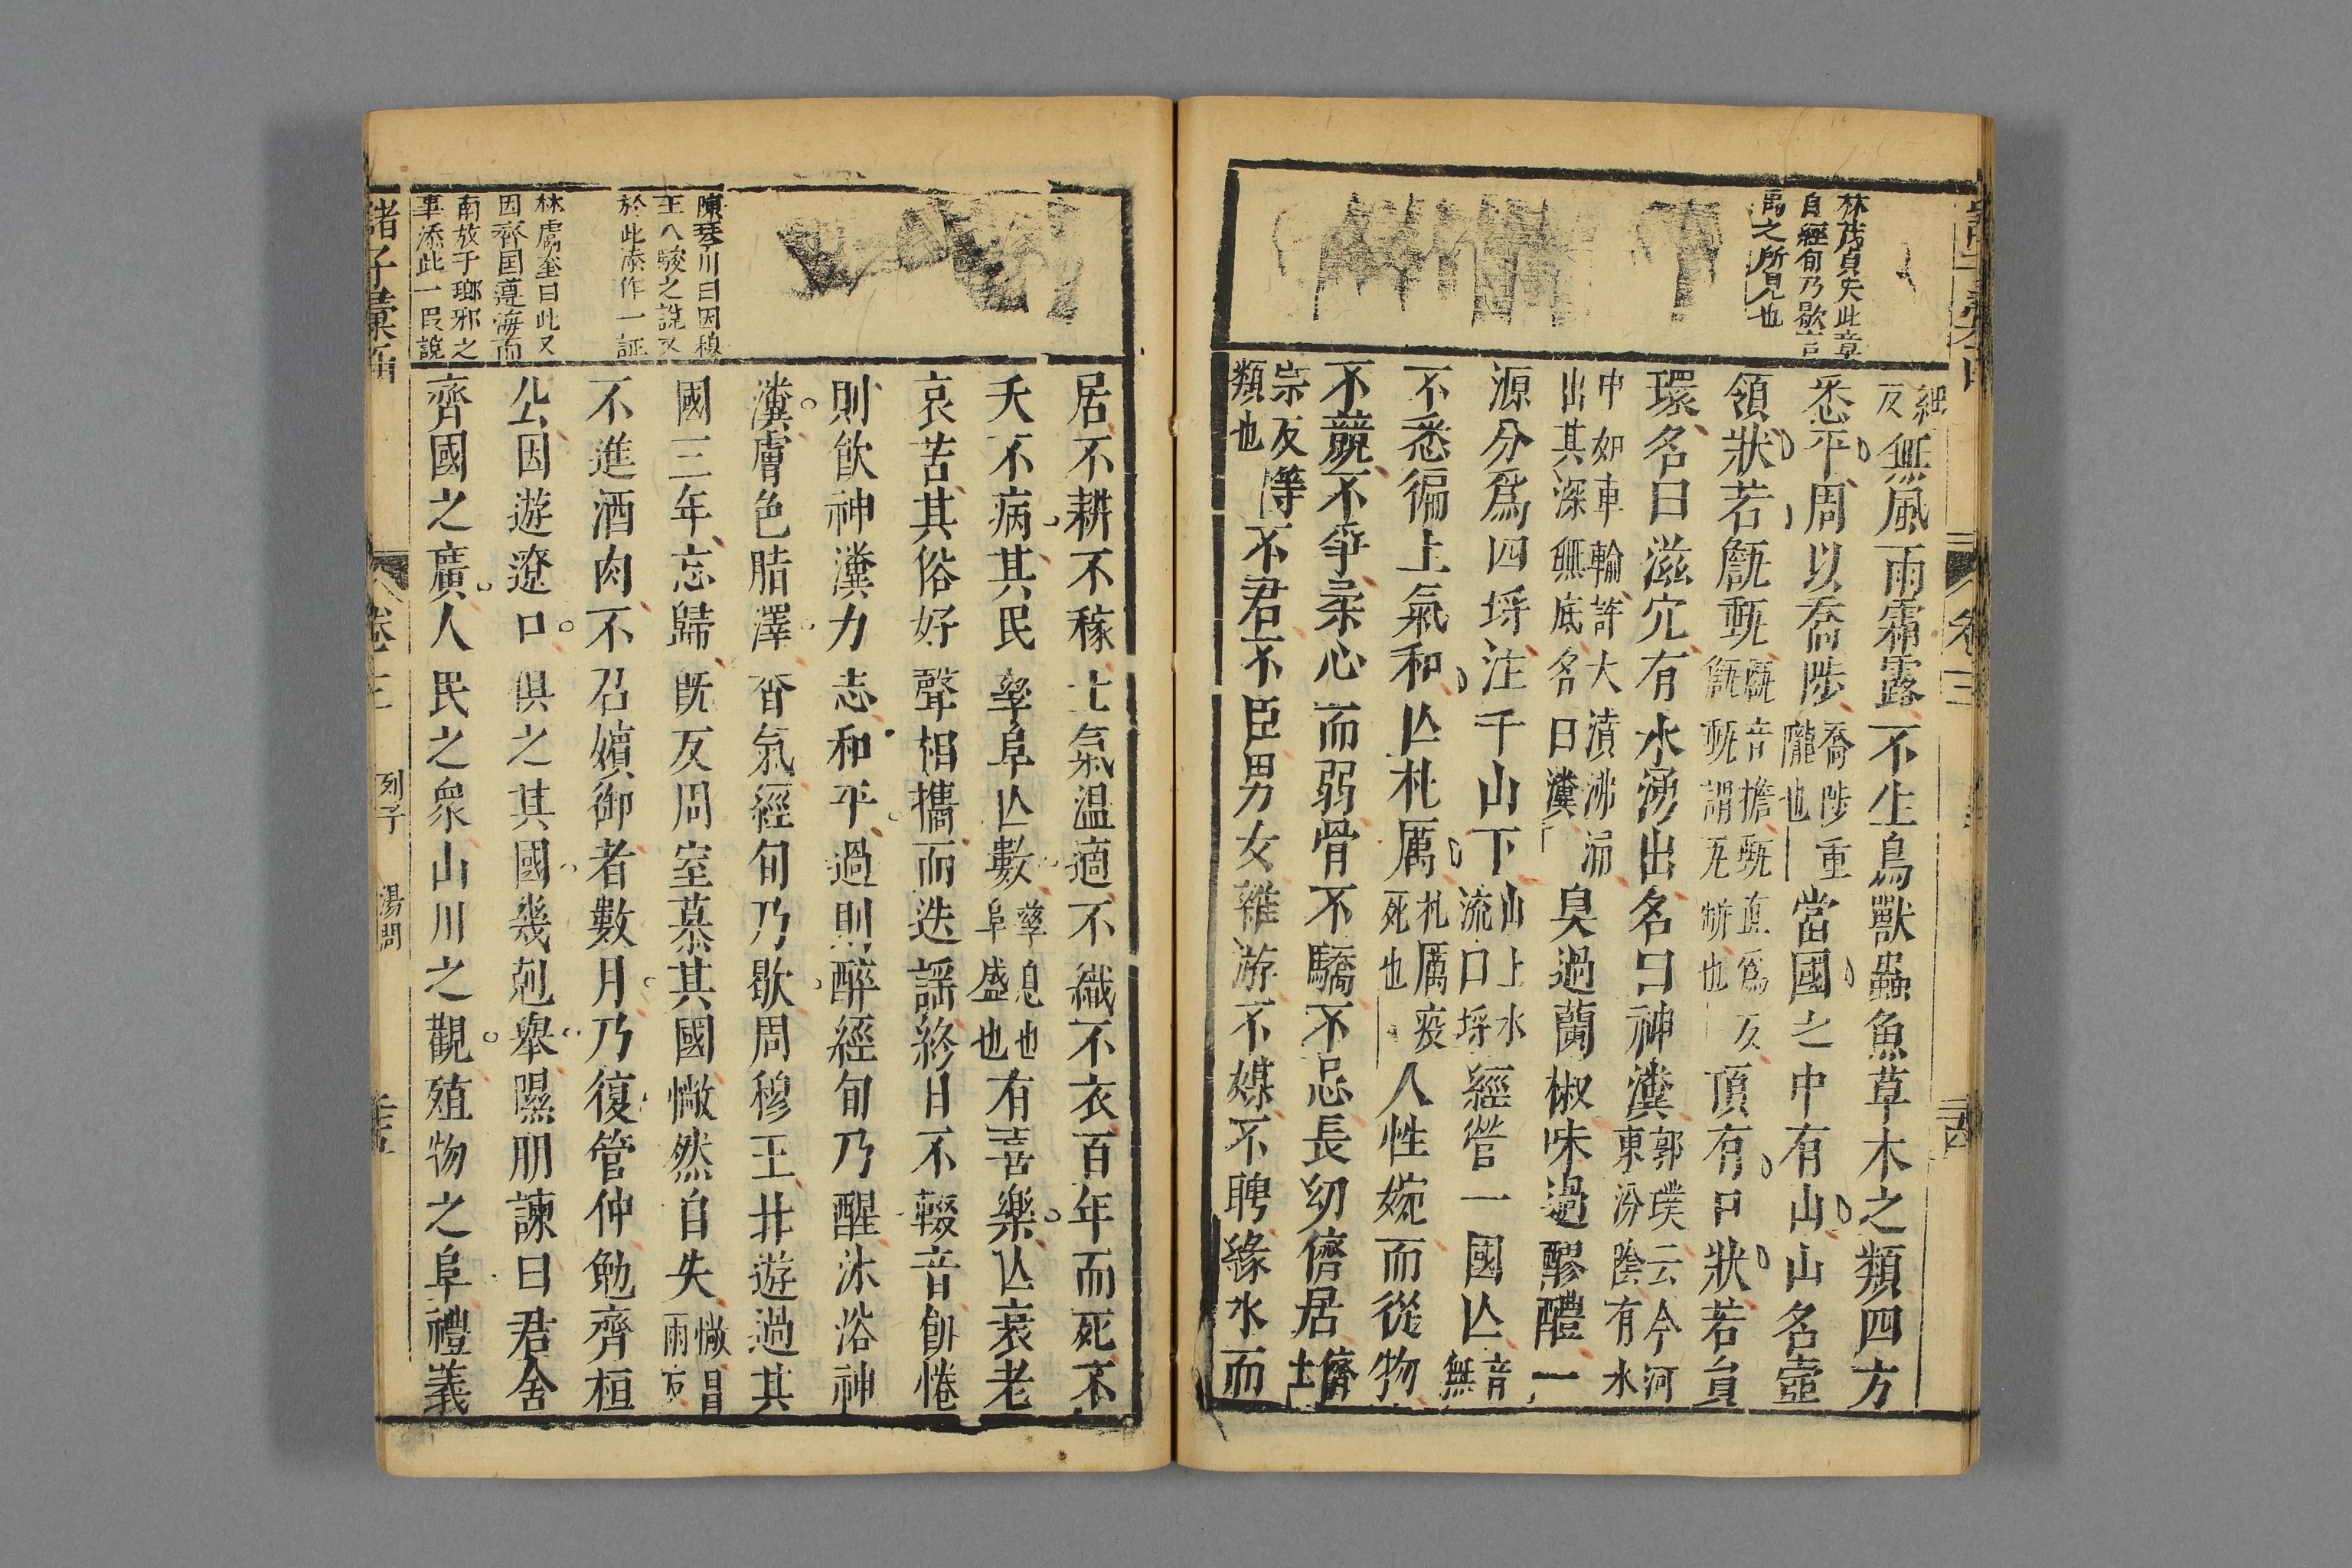 林茂貞矢此章
自經旬乃歇言
禹之所見也
細
反
無風雨霜露不生鳥獸蟲魚草木之類四方
悉平周以喬陟
喬陟重
隴也
當國之中有山山名壺
領狀若甔甄
甔音擔甄
直為反
頂有口狀若員
環名曰滋穴有水湧出名曰神瀵
郭璞云今河
東汾陰有水
中如車輪許大濆沸涌
出其深無底名曰瀵
臭過蘭椒味過醪醴一
源分爲四埒注千山下
山上水
流曰埒
經營一國亾
音
無
不悉徧土氣和亾札厲
札厲疫
死也
人性婉而從物
不競不爭柔心而弱骨不驕不忌長幼儕居
儕
士
宗反等
類也
不君不臣男女雜游不媒不聘緣水而
卷三
居不耕不稼土氣温適不織不衣百年而死不
夭不病其民孳阜亾數
孳息也
阜盛也
有喜樂亾衰老
哀苦其俗好聲相攜而迭謡終日不輟音飢惓
則飲神瀵力志和平過則醉經旬乃醒沐浴神
瀵膚色脂澤香氣經旬乃歇周穆王北遊過其
國三年忘歸既反周室慕其國惝然自失
惝昌
兩反
不進酒肉不召嬪御者數月乃復管仲勉齊桓
公因遊遼口俱之其國幾剋舉隰朋諫曰君舍
齊國之廣人民之衆山川之觀殖物之阜禮義
陳琴川曰因穆
王八駿之說又
於此添作一証
林虙奎曰此又
因齊国遵海而
南放于瑯邪之
事添此一段說
諸子彙函
卷三
列子
湯問